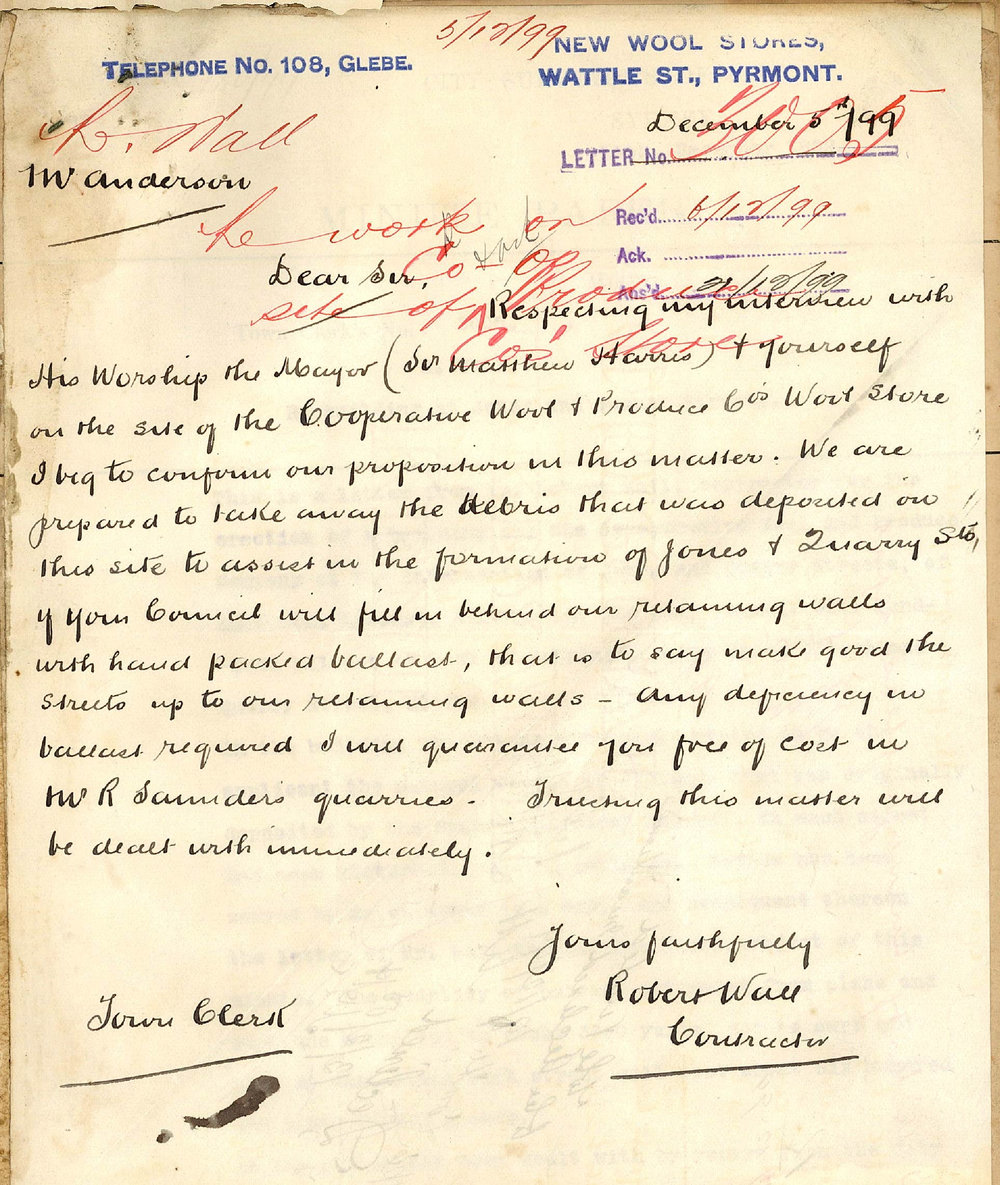 5/12/99
NEW WOOL STORES,
TELEPHONE No. 108, GLEBE.
WATTLE ST., PYRMONT.
December 5th 1899
R. Wall
LETTER No.
Mr Anderson
Rec'd. 6/12/99
re work on
Ack.
Dear Sir,
Co-op
Ans'd 21/12/99
site of Produce
Respecting my interview with
Co's Store
His Worship the Mayor (Sir Matthew Harris) & yourself
on the site of the Cooperative Wool & Produce Co's Wool Store
I beg to confirm our proposition in this matter. We are
prepared to take away the debris that was deposited on
this site to assist in the formation of Jones & Quarry Sts,
if your Council will fill in behind our retaining walls
with hand packed ballast, that is to say make good the
streets up to our retaining walls – any deficiency in
ballast required I will guarantee you free of cost in
Mr R Saunders quarries. Trusting this matter will
be dealt with immediately.
Yours faithfully
Robert Wall
Town Clerk
Contractor